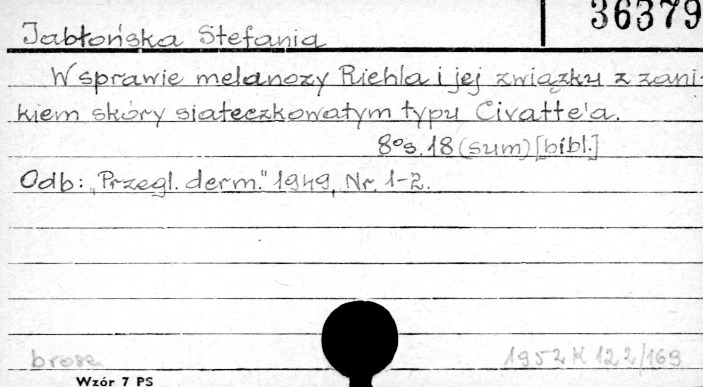 36379
Jabłońska Stefania
W sprawie melanozy Riehla i jej związku z zani-
kiem skóry siateczkowatym typu Civatte'a.
8° s. 18 (sum) [bibl.]
Odb: "Przegl. derm." 1949, Nr. 1-2.
brosz
1952 K 122/169
Wzór 7 PS